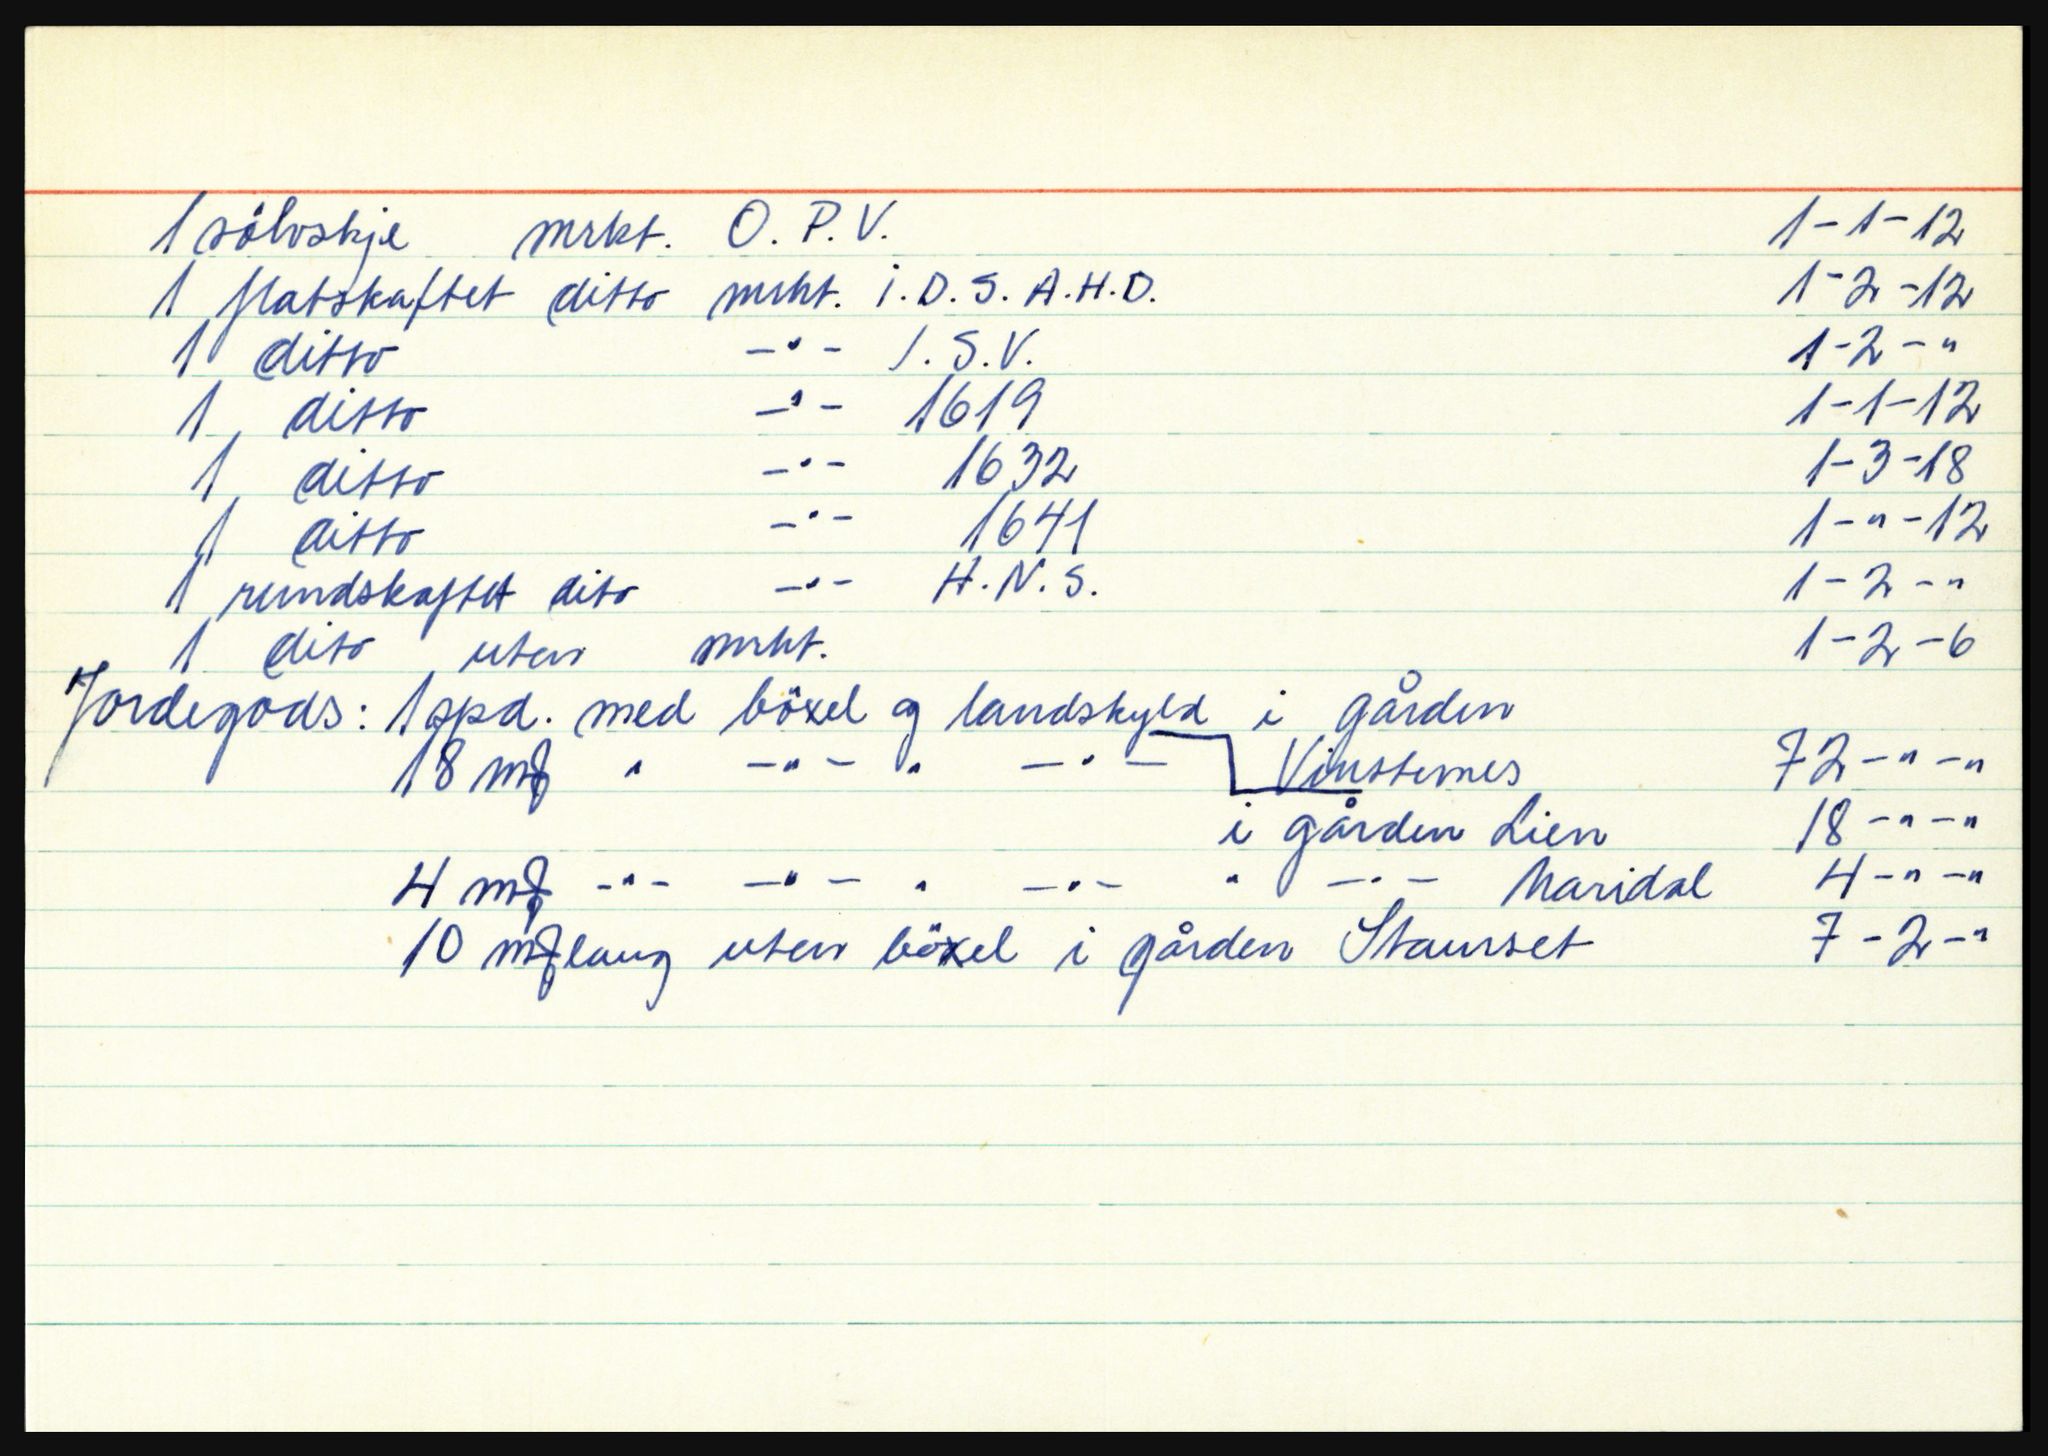 1 sölvskje mrkt. O. P. V. 1-1-12
1 flatskaftet ditto mrkt. i. D. S. A. H. D. 1-2-12
1 ditto -"- I. S. V. 1-2-"
1 ditto -"- 1619 1-1-12
1 ditto -"- 1632 1-3-18
1 ditto -"- 1641 1-"-12
1 rundskaftet dito -"- H. N. S. 1-2-"
1 dito uten mrkt. 1-2-6
Jordegods: 1 spd. med böxel og landskyld i gården
18 mf " -"- " -"- Vinsternes 72-"-"
i gården Lien 18-"-"
4 mf -"- -"- " -"- " -"- Maridal 4-"-"
10 mf laug uten böxel i gården Staurset 7-2-"